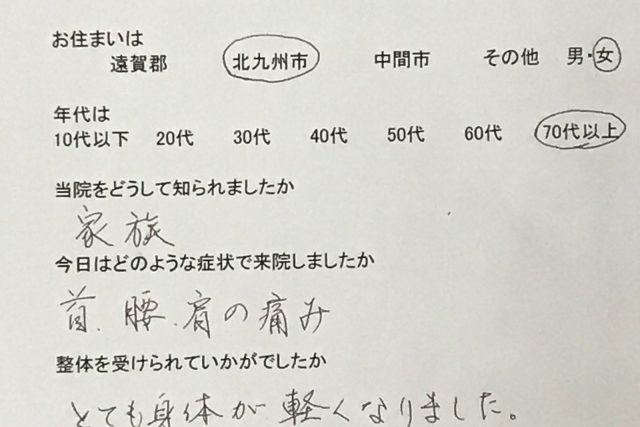 お住まいは
遠賀郡 北九州市 中間市 その他 男・女
年代は
10代以下 20代 30代 40代 50代 60代 70代以上
当院をどうして知られましたか
家族
今日はどのような症状で来院しましたか
首、腰、肩の痛み
整体を受けられていかがでしたか
とても身体が軽くなりました。